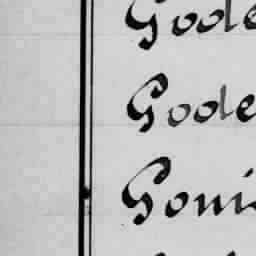 Goole
Goole
Goni